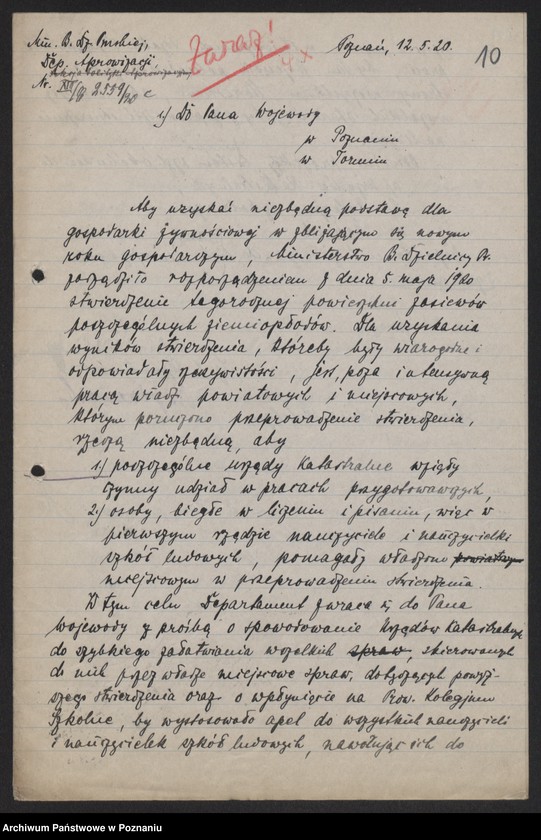 Min. B. Dz. Pruskiej,
Dep. Aprowizacji
Nr. XIV/ 2559/20 c
Zaraz!
Poznań, 12.5.20.
10
1/ Do Pana Wojewody
w Poznaniu
w Toruniu
Aby uzyskać niezbędną podstawę dla
gospodarki żywnościowej w zbliżającym się nowym
roku gospodarczym, Ministerstwo B. Dzielnicy Pr.
zarządziło rozporządzeniem z dnia 5. maja 1920
stwierdzenie tegorocznej powierzchni zasiewów
poszczególnych ziemiopłodów. Dla uzyskania
wyników stwierdzenia, któreby były wiarogodne i
odpowiadały rzeczywistości, jest, poza intensywną
pracą władz powiatowych i miejscowych,
którym poruczono przeprowadzenie stwierdzenia,
rzeczą niezbędną, aby
1) poszczególne urzędy katastralne wzięły
czynny udział w pracach przygotowawczych,
2) osoby, biegłe w liczeniu i pisaniu, więc w
pierwszym rzędzie nauczyciele i nauczycielki
szkół ludowych, pomagały władzom powiatowym
miejscowym w przeprowadzeniu stwierdzenia.
W tym celu Departament zwraca się do Pana
Wojewody z prośbą o spowodowanie Urzędów katastralnych
do szybkiego załatwiania wszelkich spraw, skierowanych
do nich przez władze miejscowe spraw, dotyczących powyż-
szego stwierdzenia oraz o wpłynięcie na Prow. Kolegjum
Szkolne, by wystosowało apel do wszystkich nauczycieli
i nauczycielek szkół ludowych, nawołując ich do
Archiwum Państwowe w Poznaniu